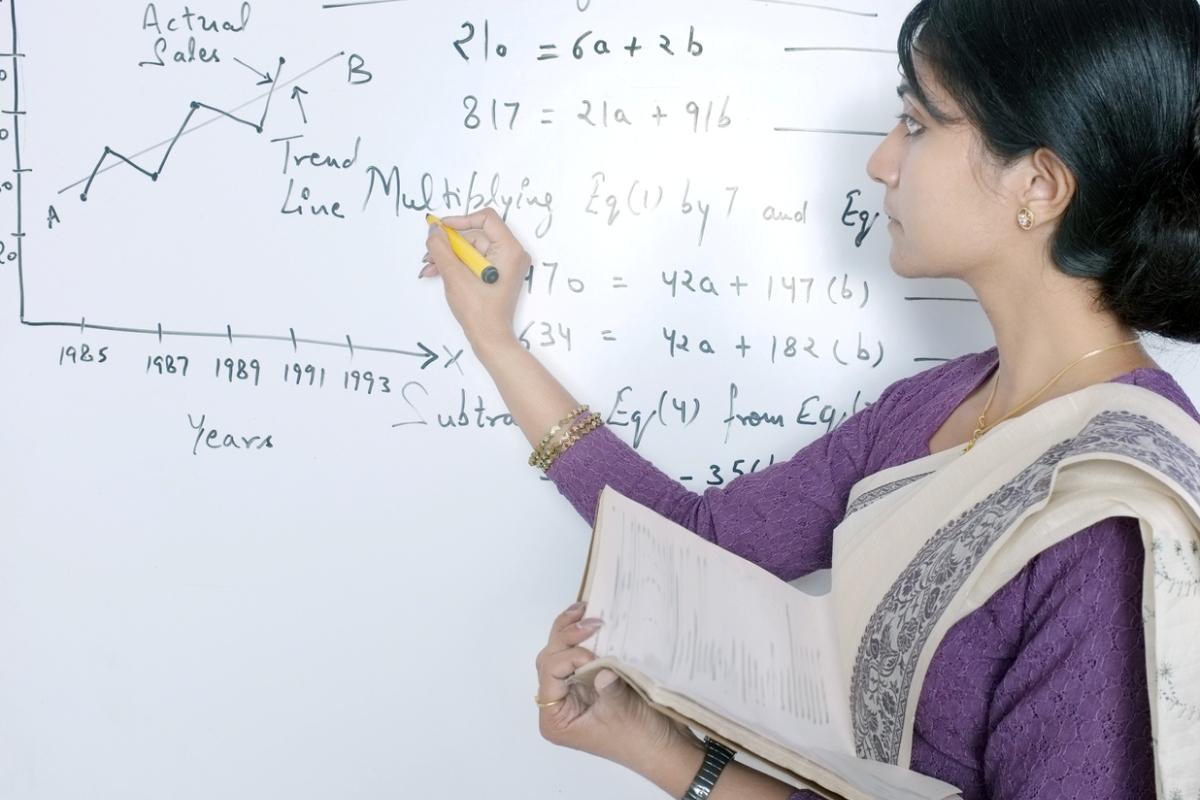 Actual
Sales
B
Trend
Line
A
20
X
1985 1987 1989 1991 1993
Years
210 = 6a + 2b
817 = 21a + 91b
Multiplying Eq(1) by 7 and Eq
470 = 42a + 147(b)
634 = 42a + 182(b)
Subtra Eq(4) from Eq
- 35(